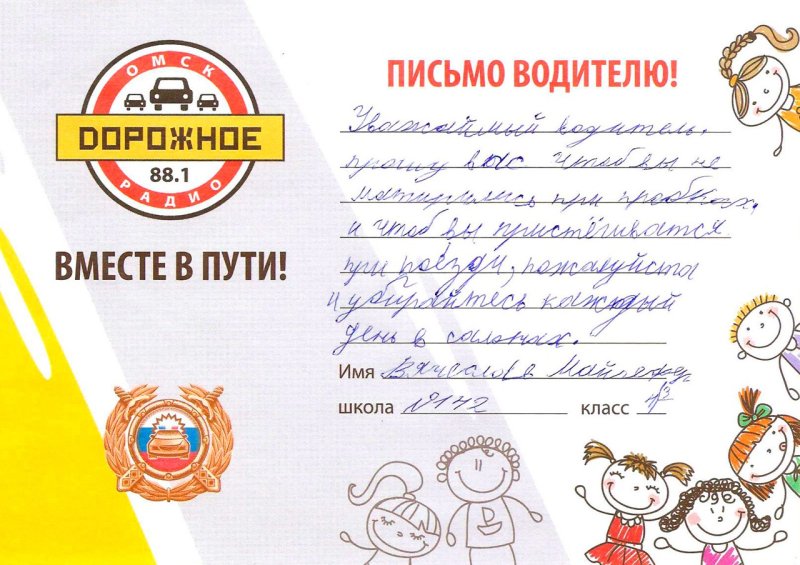 ОМСК
ДОРОЖНОЕ
88.1
РАДИО
ВМЕСТЕ В ПУТИ!
ПИСЬМО ВОДИТЕЛЮ!
Уважаймый водитель,
прошу вас чтоб вы не
матирились при пробках,
и чтоб вы пристёгиватся
при поезди, пожалуйста
и убирайтесь каждый
день в салонах.
Имя Вячеслав
школа №142 класс